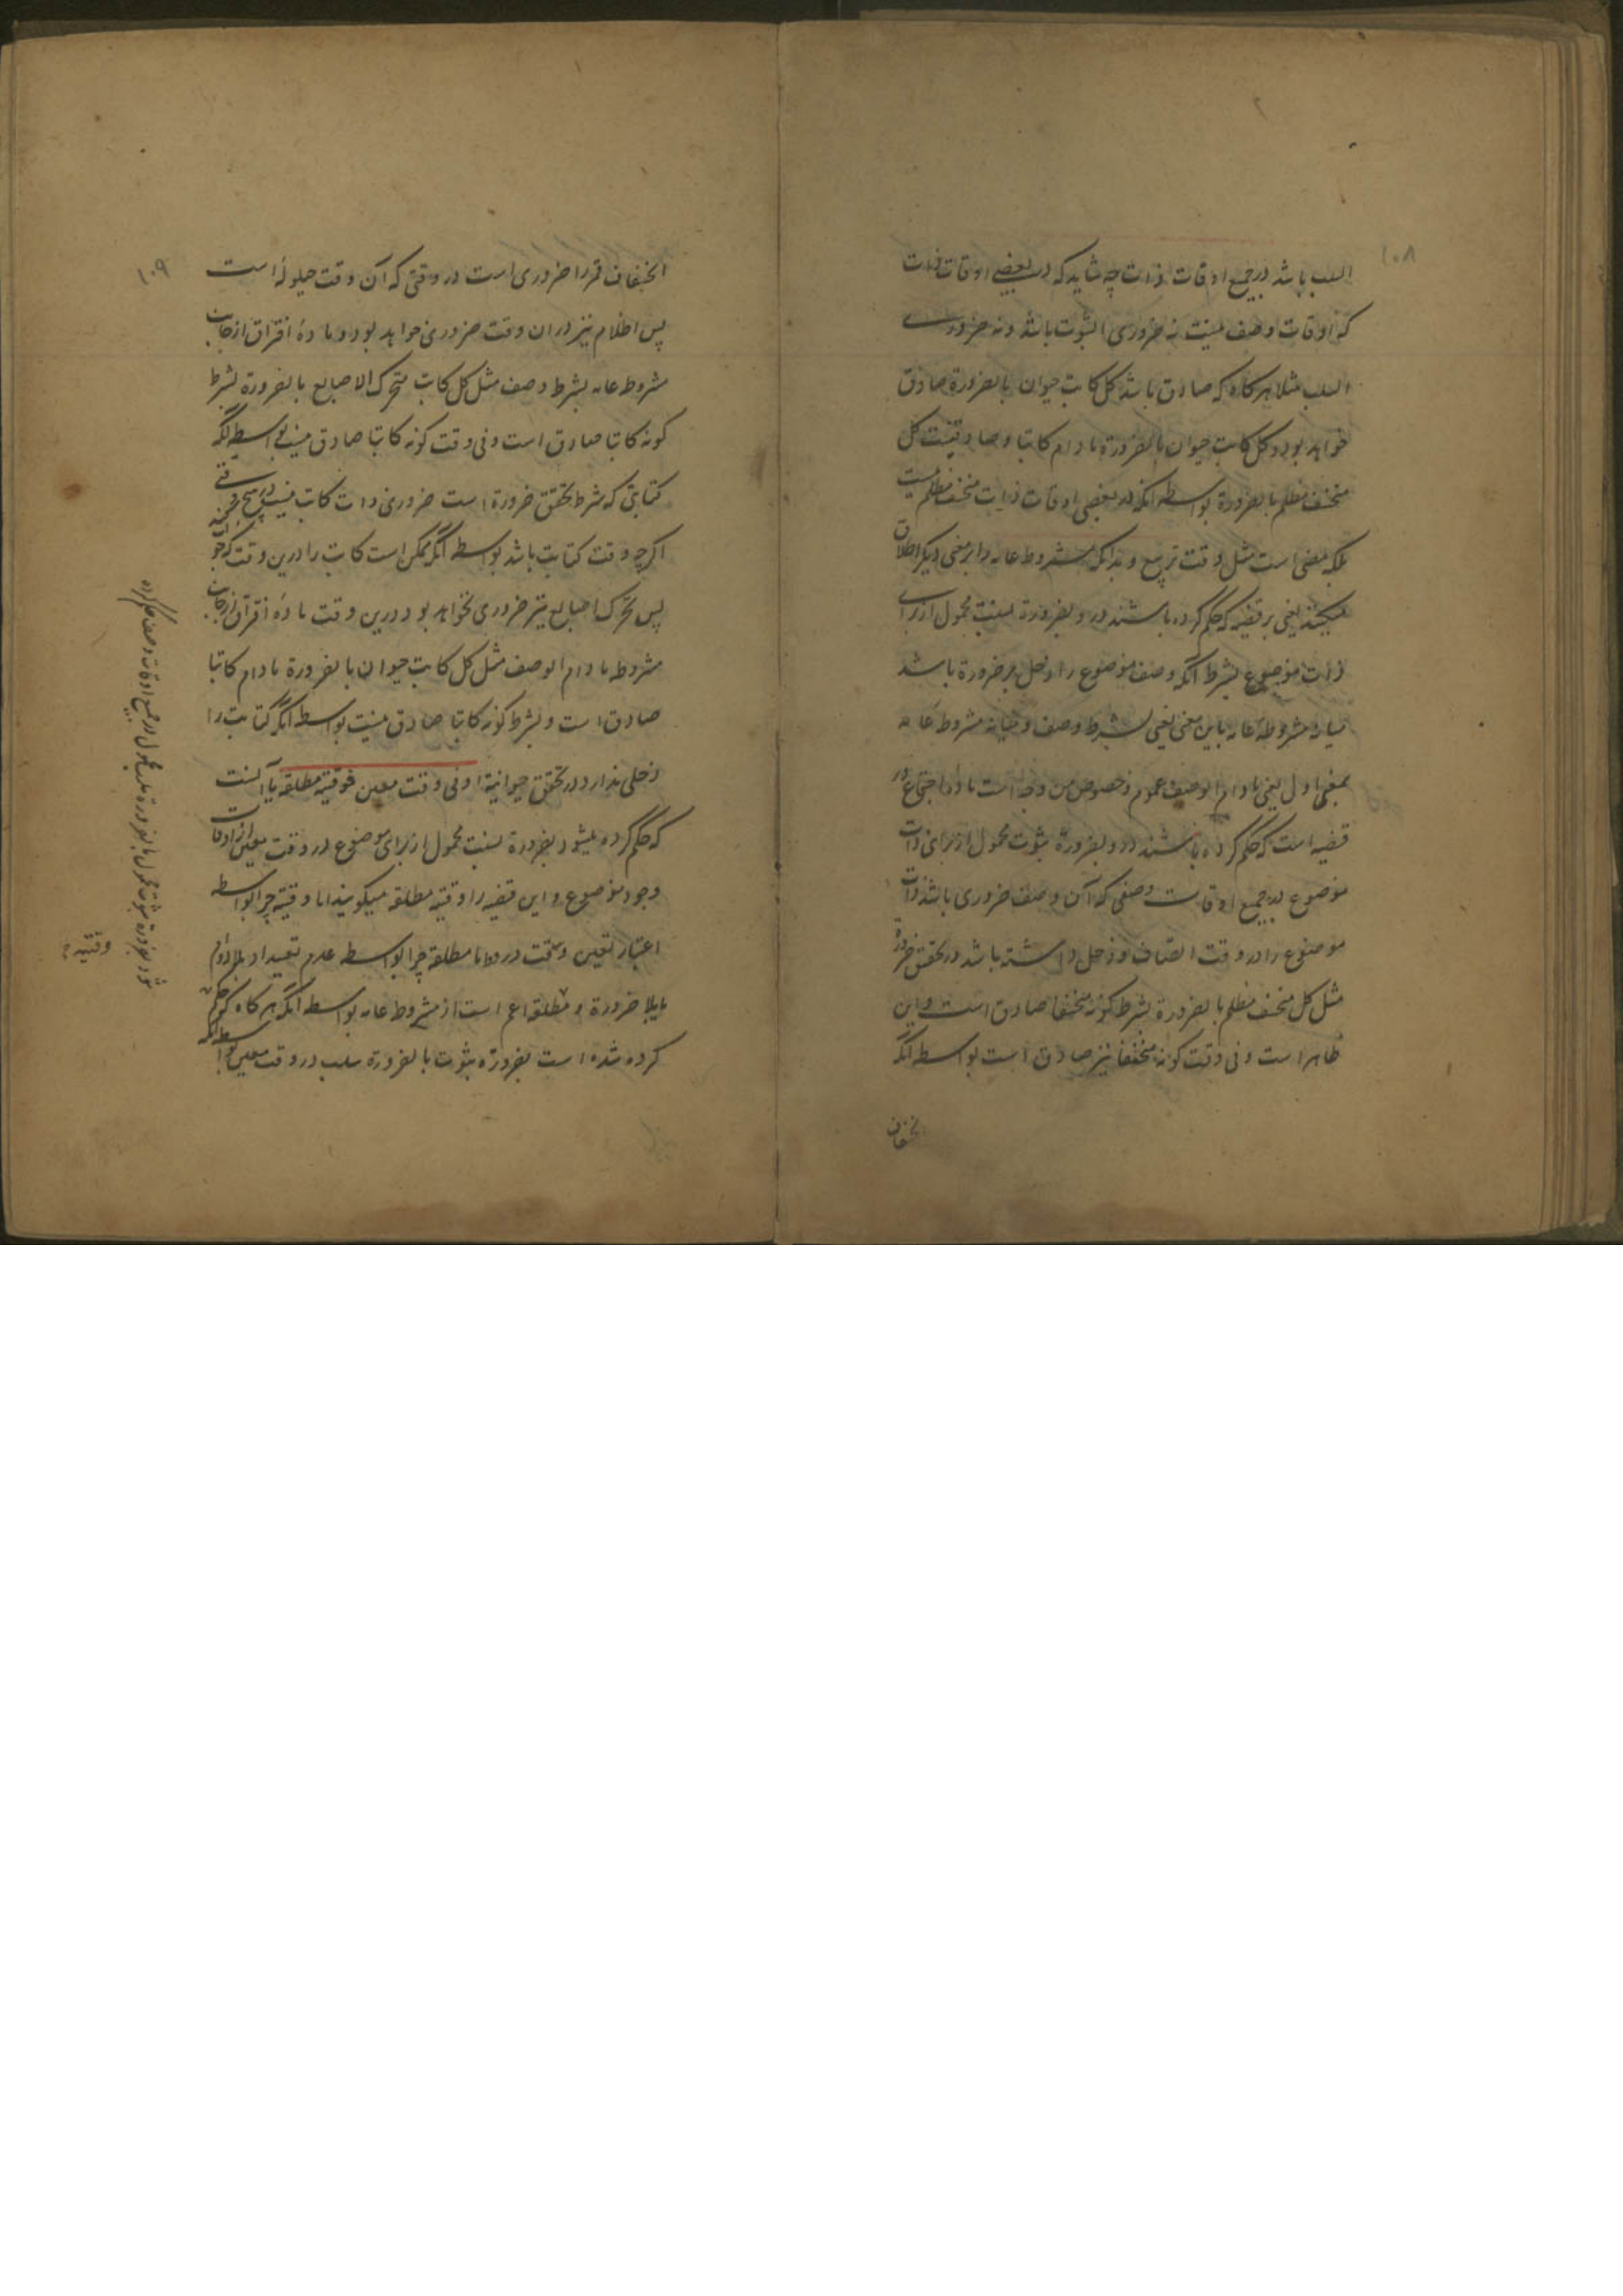 ۱۰۸
السلب باشد در جمیع اوقات ذات چه شاید که در بعضی اوقات ذات
که اوقات وصف نیست نه ضروری الثبوت باشد و نه ضروری
السلب مثلا هرکاه که صادق باشد کل کاتب حیوان بالضرورة صادق
خواهد بود کل کاتب حیوان بالضرورة مادام کاتبا و صادق نیست کل
منخسف مظلم بالضرورة بواسطه آنکه در بعضی اوقات ذات منخسف مظلم نیست
بلکه مضی است مثل وقت تربیع و بدانکه مشروطه عامه را بر معنی دیکر اطلاق
میکنند یعنی بر قضیه که حکم کرده باشند درو بضرورة نسبت محمول از برای
ذات موضوع بشرط آنکه وصف موضوع را دخل در ضرورة باشد
میانه مشروطه عامه باین معنی یعنی بشرط وصف و میانه مشروطه عامه
بمعنی اول یعنی مادام الوصف عموم و خصوص من وجه است ماده اجتماع در
قضیه است که حکم کرده باشند درو بضرورة ثبوت محمول از برای ذات
موضوع در جمیع اوقات وصفی که آن وصف ضروری باشد ذات
موضوع را در وقت اتصاف و دخل داشته باشد در تحقق ضرورة
مثل کل منخسف مظلم بالضرورة بشرط کونه منخسفا صادق است و این
ظاهر است و فی وقت کونه منخسفا نیز صادق است بواسطه آنکه
انخساف
۱۰۹
انخساف قمر را ضروری است در وقتی که آن وقت حیلولة است
پس اظلام نیز در ان وقت ضروری خواهد بود و مادۀ افتراق از جانب
مشروطه عامه بشرط وصف مثل کل کاتب متحرک الاصابع بالضرورة بشرط
کونه کاتبا صادق است و فی وقت کونه کاتبا صادق نیست بواسطه آنکه
کتابتی که شرط تحقق ضرورة است ضروری ذات کاتب نیست در هیچ وقتی
اکرچه وقت کتابت باشد بواسطه آنکه ممکن است کاتب را درین وقت که
پس تحرک اصابع نیز ضروری نخواهد بود درین وقت مادۀ افتراق از جانب
مشروطه مادام الوصف مثل کل کاتب حیوان بالضرورة مادام کاتبا
صادق است و بشرط کونه کاتبا صادق نیست بواسطه آنکه کتابت را
دخلی ندارد در تحقق حیوانیة او فی وقت معین فوقتیه مطلقه یا آنست
که حکم کرده میشود بضرورة نسبت محمول از برای موضوع در وقت معین از اوقات
وجود موضوع و این قضیه را وقتیه مطلقه میکویند اما وقتیه چرا بواسطه
اعتبار تعیین وقت درو اما مطلقه چرا بواسطه عدم تقیید او بلادوام
یا بلا ضرورة و مطلقه اعم است از مشروطه عامه بواسطه آنکه هرکاه که حکم
کرده شده است بضرورة ثبوت یا بضرورة سلب در وقت معین بواسطه آنکه
شود بضرورة ثبوت محمول یا بضرورة سلب محمول در جمیع اوقات وصف حکم کرده
وقتیه